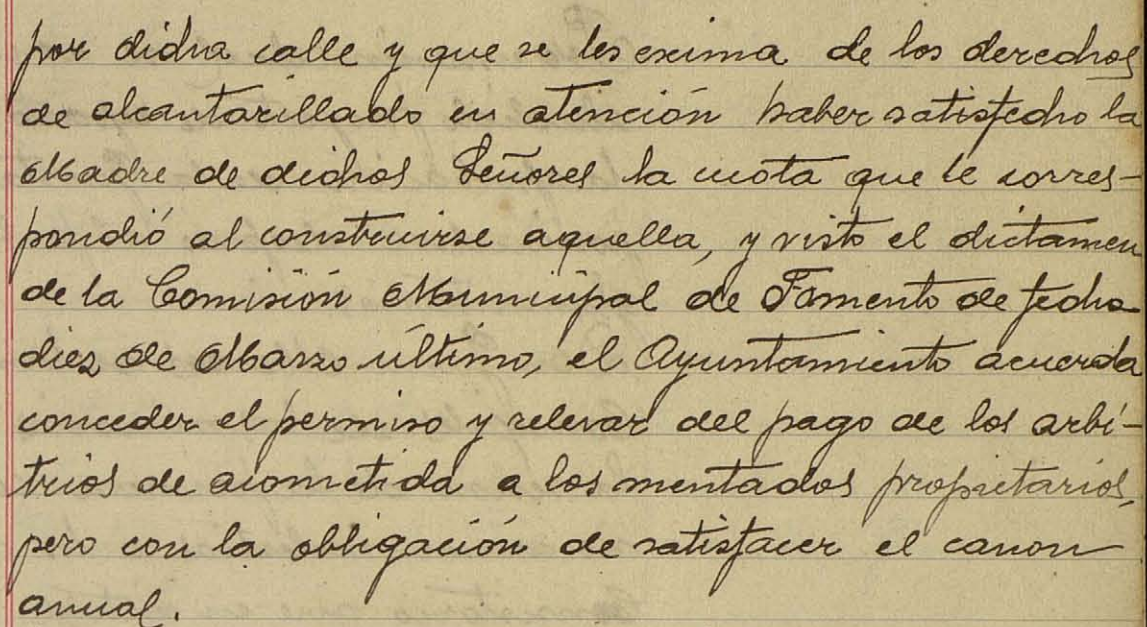 por dicha calle y que se les exima de los derechos
de alcantarillado en atención haber satisfecho la
Madre de dichos Señores la cuota que le corres-
pondió al construirse aquella, y visto el dictamen
de la Comisión Municipal de Fomento de fecha
diez de Marzo último, el Ayuntamiento acuerda
conceder el permiso y relevar del pago de los arbi-
trios de acometida a los mentados propietarios,
pero con la obligación de satisfacer el canon
anual.